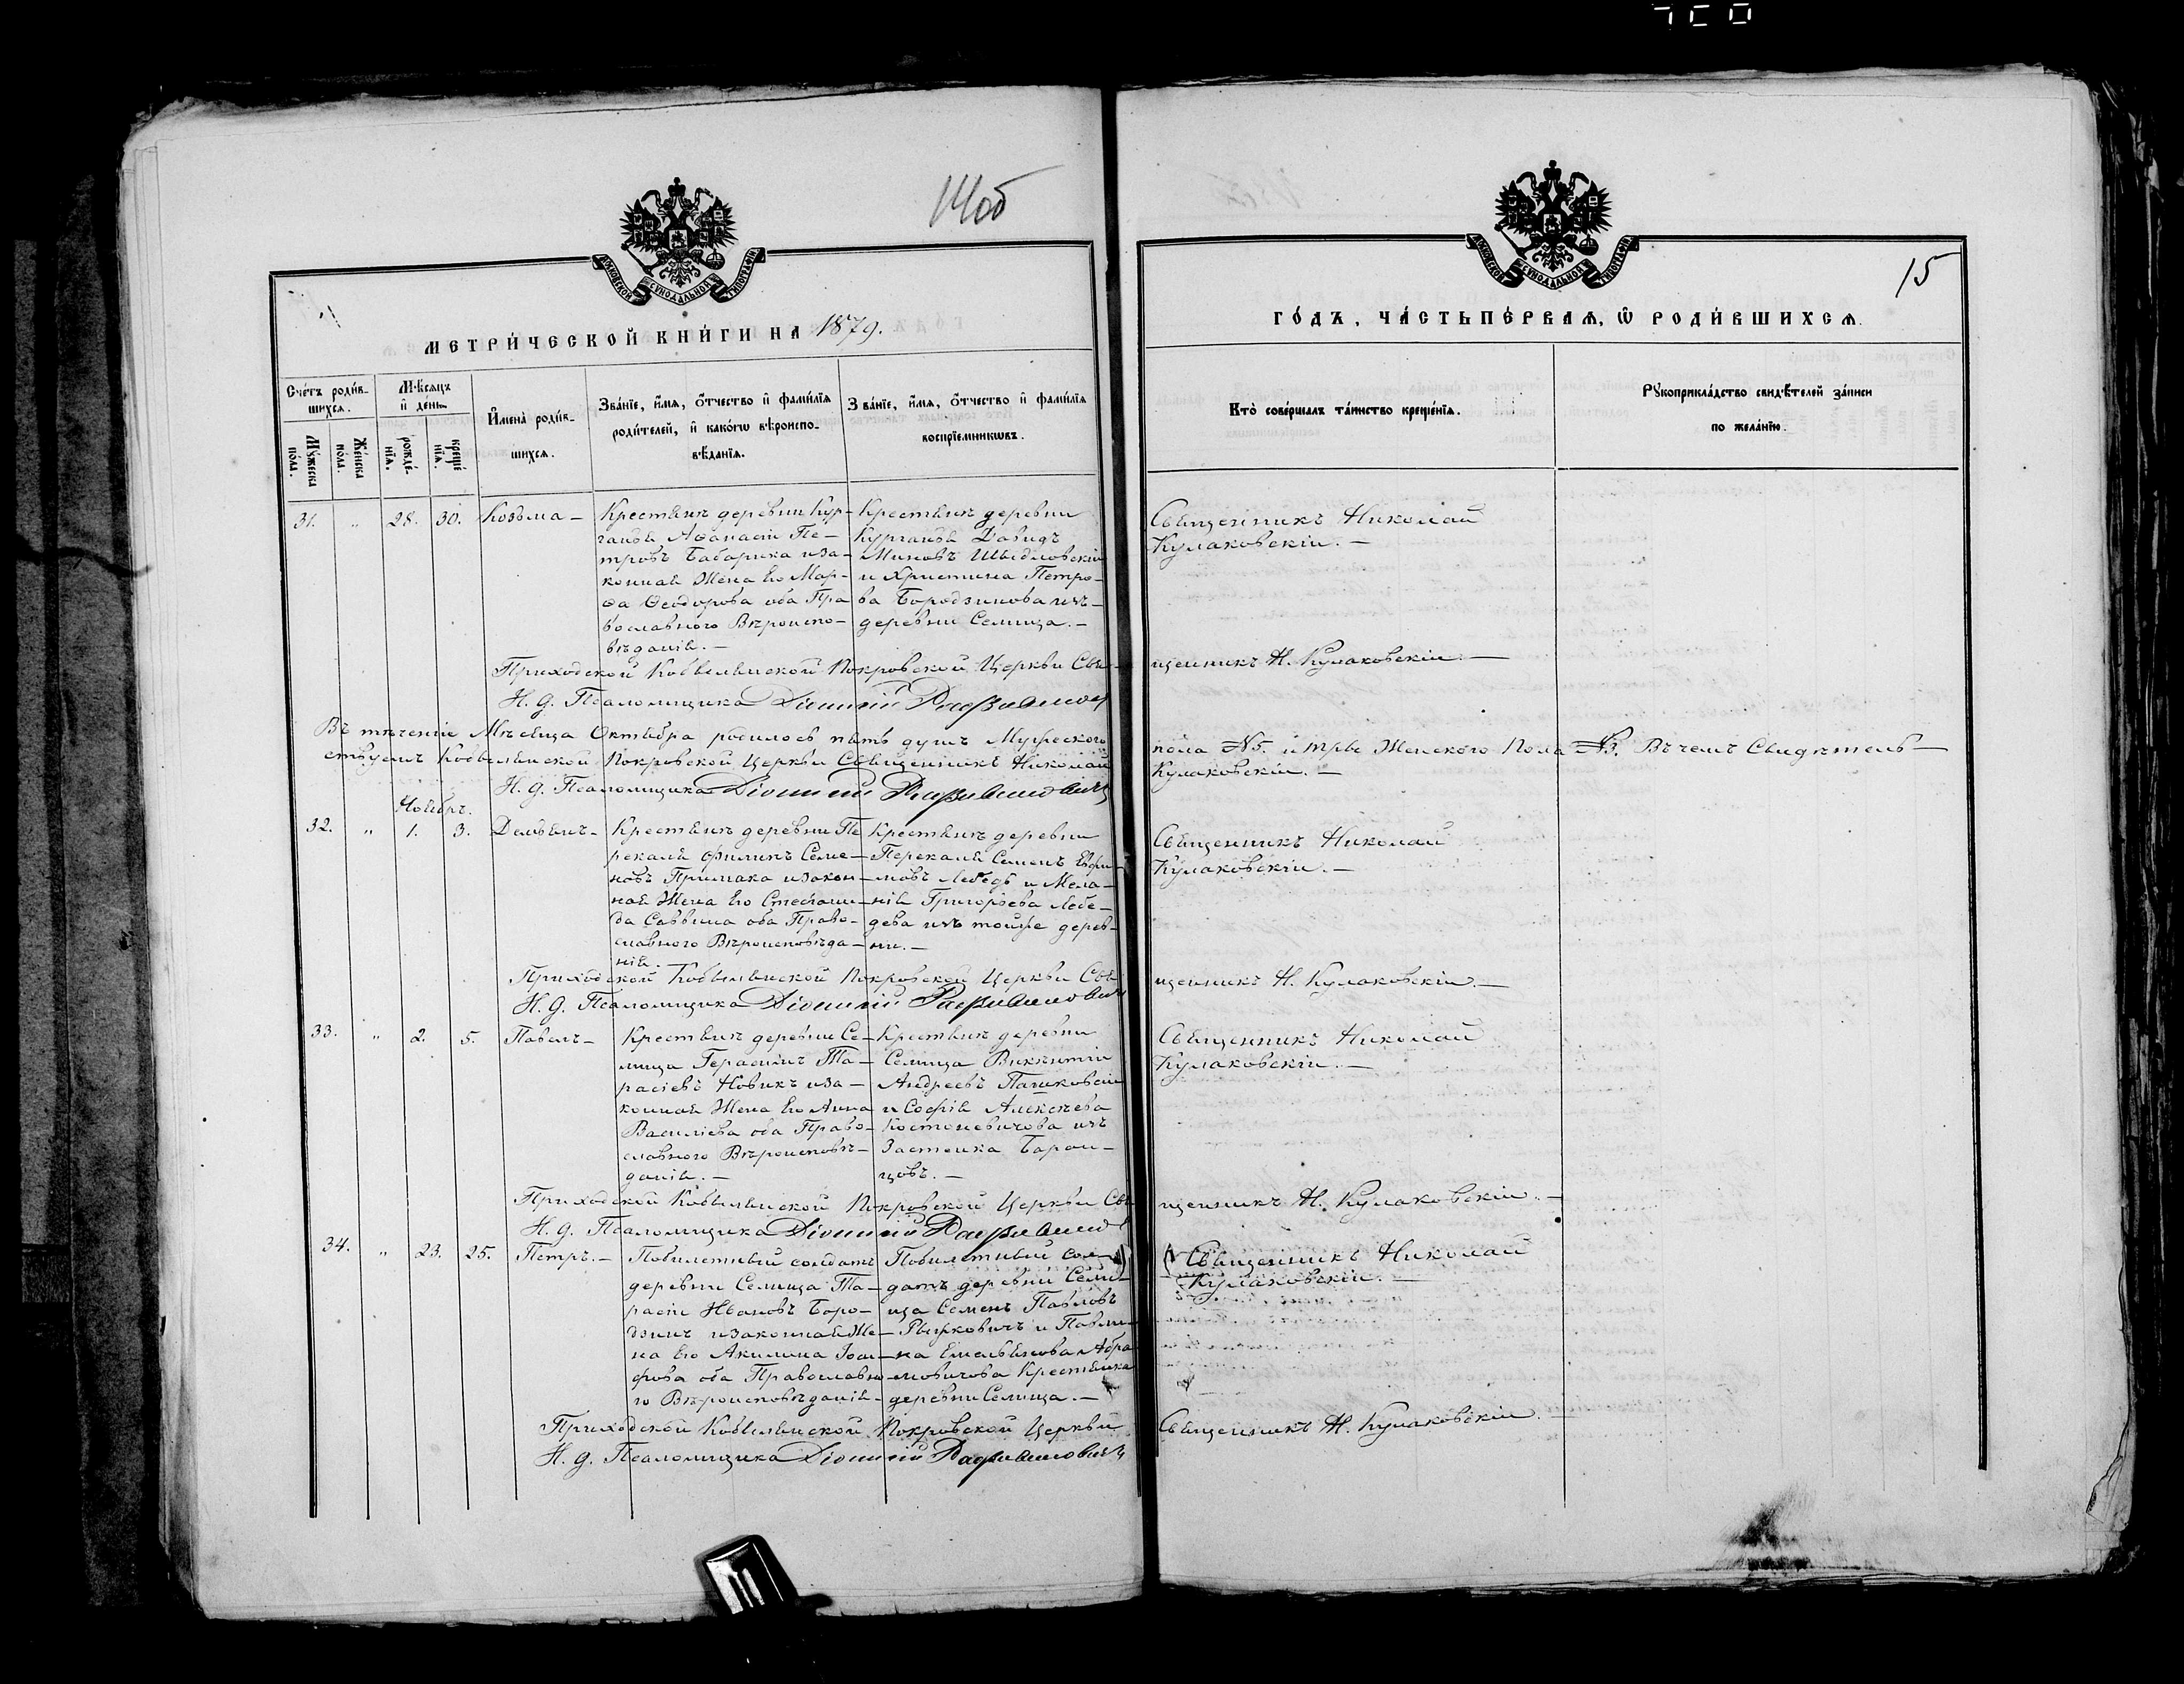 14об
15
МОСКОВСКОЙ СѴНОДАЛЬНОЙ ТИПОГРАФІИ
МОСКОВСКОЙ СѴНОДАЛЬНОЙ ТИПОГРАФІИ
МЕТРИ́ЧЕСКОЙ КНИ́ГИ НА 1879.
ГО́ДЪ, ЧА́СТЬ ПЕ́РВАѦ, Ѡ҆ РОДИ́ВШИХСѦ.
Сче́тъ роди́в-
шихсѧ.
Мꙋ́жеска по́ла.
Же́нска по́ла.
Мѣ́сѧцъ
и҆ де́нь.
рожде́-
нїѧ.
креще́
нїѧ.
И҆мена̀ роди́в-
шихсѧ.
Зва́нїе, и҆́мѧ, ѻ҆́тчество и҆ фами́лїѧ
роди́телей, и҆ како́гѡ вѣроиспо-
вѣ́данїѧ.
Зва́нїе, и҆́мѧ, ѻ҆́тчество и҆ фами́лїѧ
воспрїе́мникѡвъ.
Кто̀ соверша́лъ та́инство креще́нїѧ.
Рꙋкоприкла́дство свидѣ́телей за́писи
по жела́нїю.
31. " 28. 30. Козьма —
Крестьянъ деревни Кур-
ганья Аѳанасіи Пе-
тровъ Бабарика иза-
конная Жена Его Мар-
ѳа Ѳеодорова оба Пра
вославного Вѣроиспо-
вѣданія. —
Крестьянъ деревни
Курганья Давидъ
Миновъ Шыдловскій
и Христина Петро-
ва Бородзинова изъ
деревни Селища. —
Священникъ Николай
Кулаковскій. —
Приходской Кобыльнской Покровской Церкви Свя- щенникъ Н. Кулаковскіи. —
И. д. Псаломщика Діонисій
Въ теченіе Мѣсяца Октября родилось пять душъ Мужеского пола №5. и три Женского Пола №3. Въ чемъ Свидѣтель-
ствуемъ Кобыльнской Покровской Церкви Священникъ Николай Кулаковскіи. —
И. д. Псаломщика Діонисій
Ноябрь.
32. " 1. 3. Демьянъ —
Крестьянъ деревни Пе
рекалья Филипъ Семе-
новъ Примака изакон-
ная Жена Его Стефани-
да Саввина оба Право-
славного Вѣроисповѣда-
нія.
Крестьянъ деревни
Перекалья Семенъ Ефи-
мовъ Лебедь и Мела-
нія Григорьева Лебе-
дева изъ тойже дерев-
ни. —
Священникъ Николай
Кулаковскіи. —
Приходской Кобыльнской Покровской Церкви Свя щенникъ Н. Кулаковскіи. —
И. д. Псаломщика Діонисій
33. " 2. 5. Павелъ —
Крестьянъ деревни Се-
лища Герасимъ Та-
расіевъ Новикъ иза-
конная Жена Его Анна
Василіева оба Право-
славного Вѣроисповѣ-
данія. —
Крестьянъ деревни
Селища Викентіи
Андреевъ Пачковскій
и Софія Алексѣева
Костюкевичова изъ
Застенка Баран-
цовъ. —
Священникъ Николай
Кулаковскіи. —
Приходской Кобыльнской Покровской Церкви Свя щенникъ Н. Кулаковскіи. —
И. д. Псаломщика Діонисій
34. " 23. 25. Петръ. —
Побилетный солдатъ
деревни Селища Та-
расіи Ивановъ Боро-
дзинъ изаконная Же-
на Его Акилина Іоси-
фова оба Православно-
го Вѣроисповѣданія —
Побилетный сол-
датъ деревни Сели-
ща Семенъ Павловъ
Рыжковичъ и Павли-
на Емельянова Абра
мовичова Крестьянка
деревни Селища. —
Священникъ Николай
Кулаковскіи. —
Приходской Кобыльнской Покровской Церкви Священникъ Н. Кулаковскіи. —
И. д. Псаломщика Діонисій